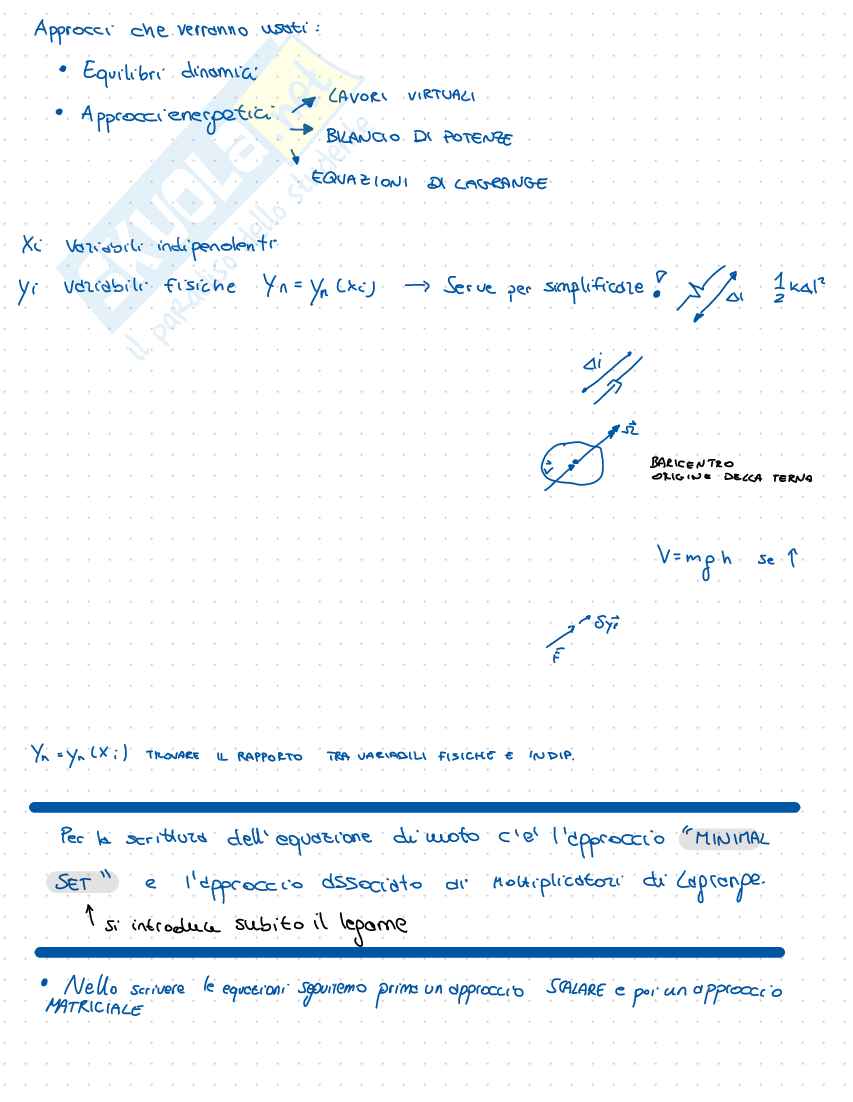 Approcci che verranno usati:
• Equilibri dinamici
• Approcci energetici
LAVORI VIRTUALI
BILANCIO DI POTENZE
EQUAZIONI DI LAGRANGE
SKUOLA.net
il paradiso dello studente
xi variabili indipendenti
yi variabili fisiche yn = yn (xi) → Serve per semplificare! Δl 1/2 kΔl²
Δi
Ω
v
BARICENTRO
ORIGINE DELLA TERNA
V = mgh se ↑
δyi
F
yn = yn (xi) TROVARE IL RAPPORTO TRA VARIABILI FISICHE E INDIP.
Per la scrittura dell'equazione di moto c'è l'approccio "MINIMAL
SET" e l'approccio associato di Moltiplicatori di Lagrange.
↑ si introduce subito il legame
• Nello scrivere le equazioni seguiremo prima un approccio SCALARE e poi un approccio
MATRICIALE